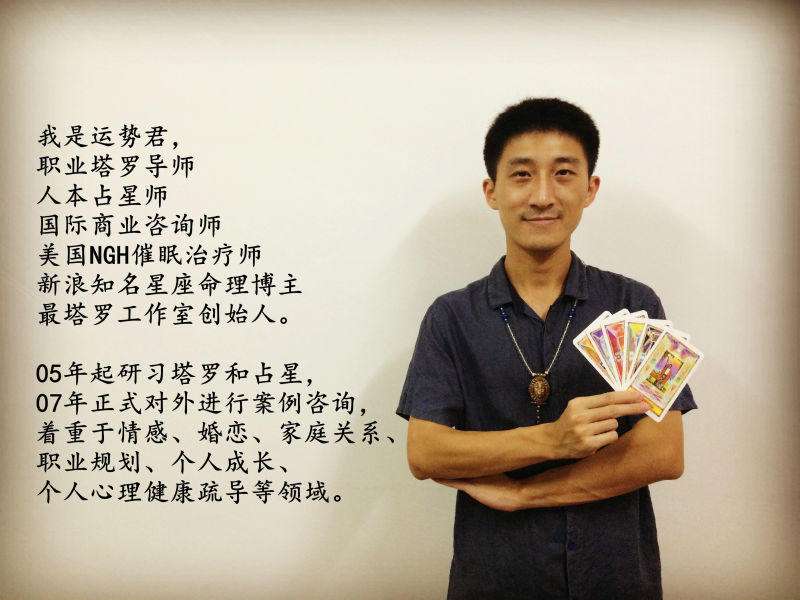 我是运势君，
职业塔罗导师
人本占星师
国际商业咨询师
美国NGH催眠治疗师
新浪知名星座命理博主
最塔罗工作室创始人。
05年起研习塔罗和占星，
07年正式对外进行案例咨询，
着重于情感、婚恋、家庭关系、
职业规划、个人成长、
个人心理健康疏导等领域。